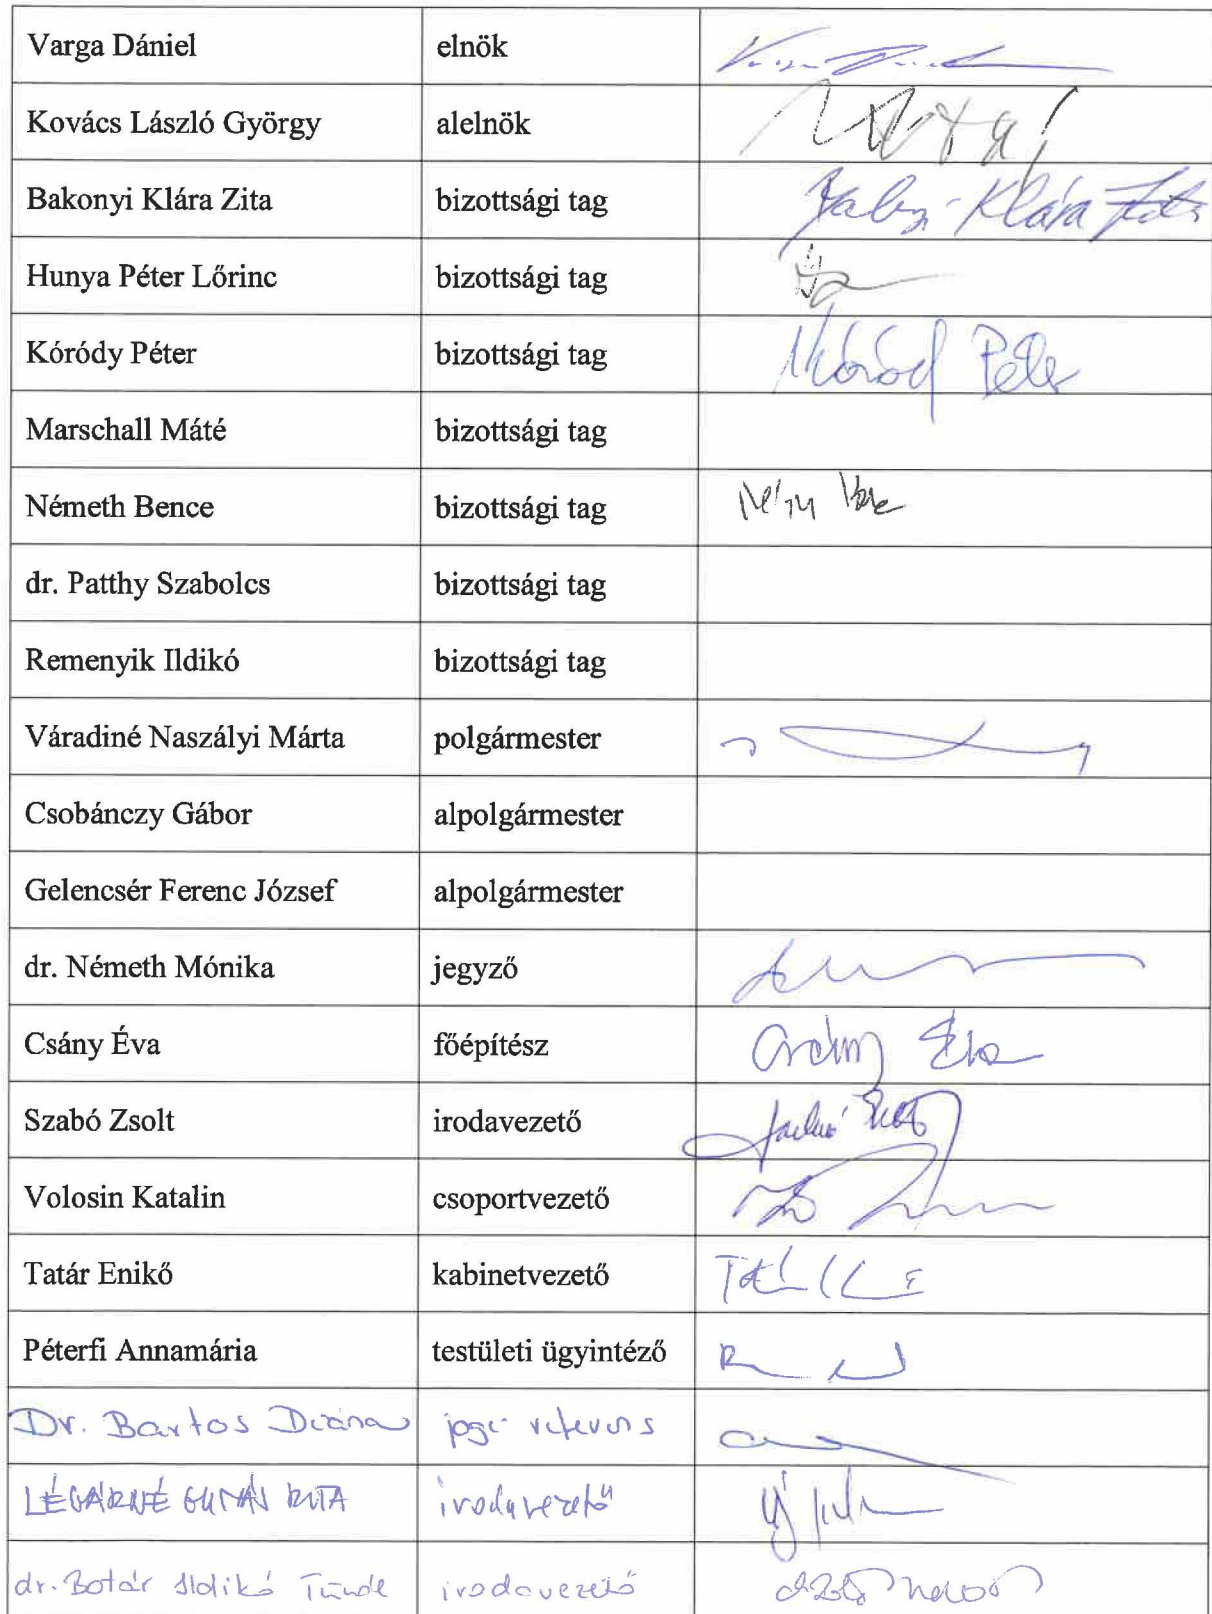 Varga Dániel elnök
Kovács László György alelnök
Bakonyi Klára Zita bizottsági tag Klára
Hunya Péter Lőrinc bizottsági tag
Kóródy Péter bizottsági tag Kóród Péter
Marschall Máté bizottsági tag
Németh Bence bizottsági tag
dr. Patthy Szabolcs bizottsági tag
Remenyik Ildikó bizottsági tag
Váradiné Naszályi Márta polgármester
Csobánczy Gábor alpolgármester
Gelencsér Ferenc József alpolgármester
dr. Németh Mónika jegyző
Csány Éva főépítész
Szabó Zsolt irodavezető
Volosin Katalin csoportvezető
Tatár Enikő kabinetvezető
Péterfi Annamária testületi ügyintéző
Dr. Bartos Diána jogi referens
LÉGÁRNÉ RITA irodavezető
dr. Botár Ildikó Tünde irodavezető